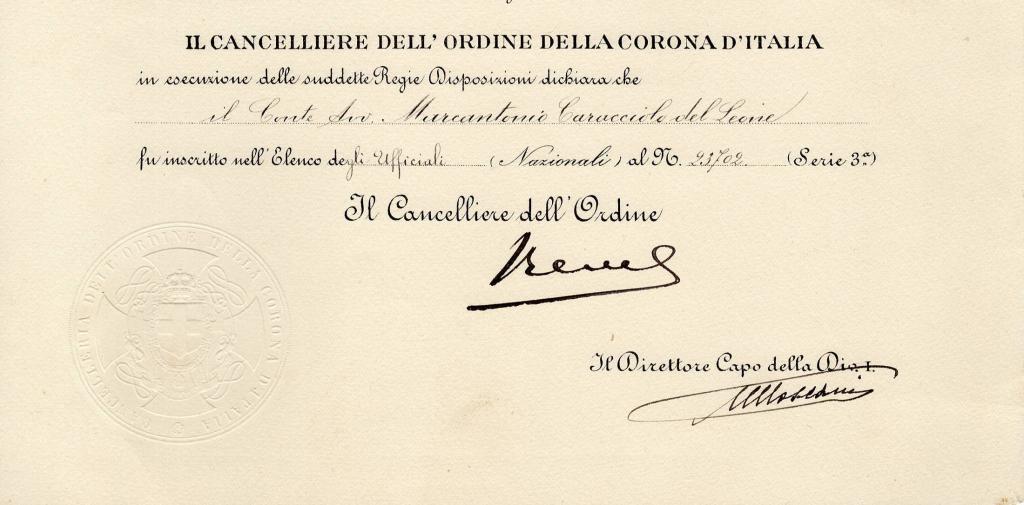 IL CANCELLIERE DELL' ORDINE DELLA CORONA D'ITALIA
in esecuzione delle suddette Regie Disposizioni dichiara che
il Conte Avv. Marcantonio Caracciolo del Leone
fu inscritto nell'Elenco degli Ufficiali (Nazionali) al N. 23702. (Serie 3ª)
Il Cancelliere dell'Ordine
CANCELLERIA DELL'ORDINE DELLA CORONA D'ITALIA
Il Direttore Capo della Div. I.